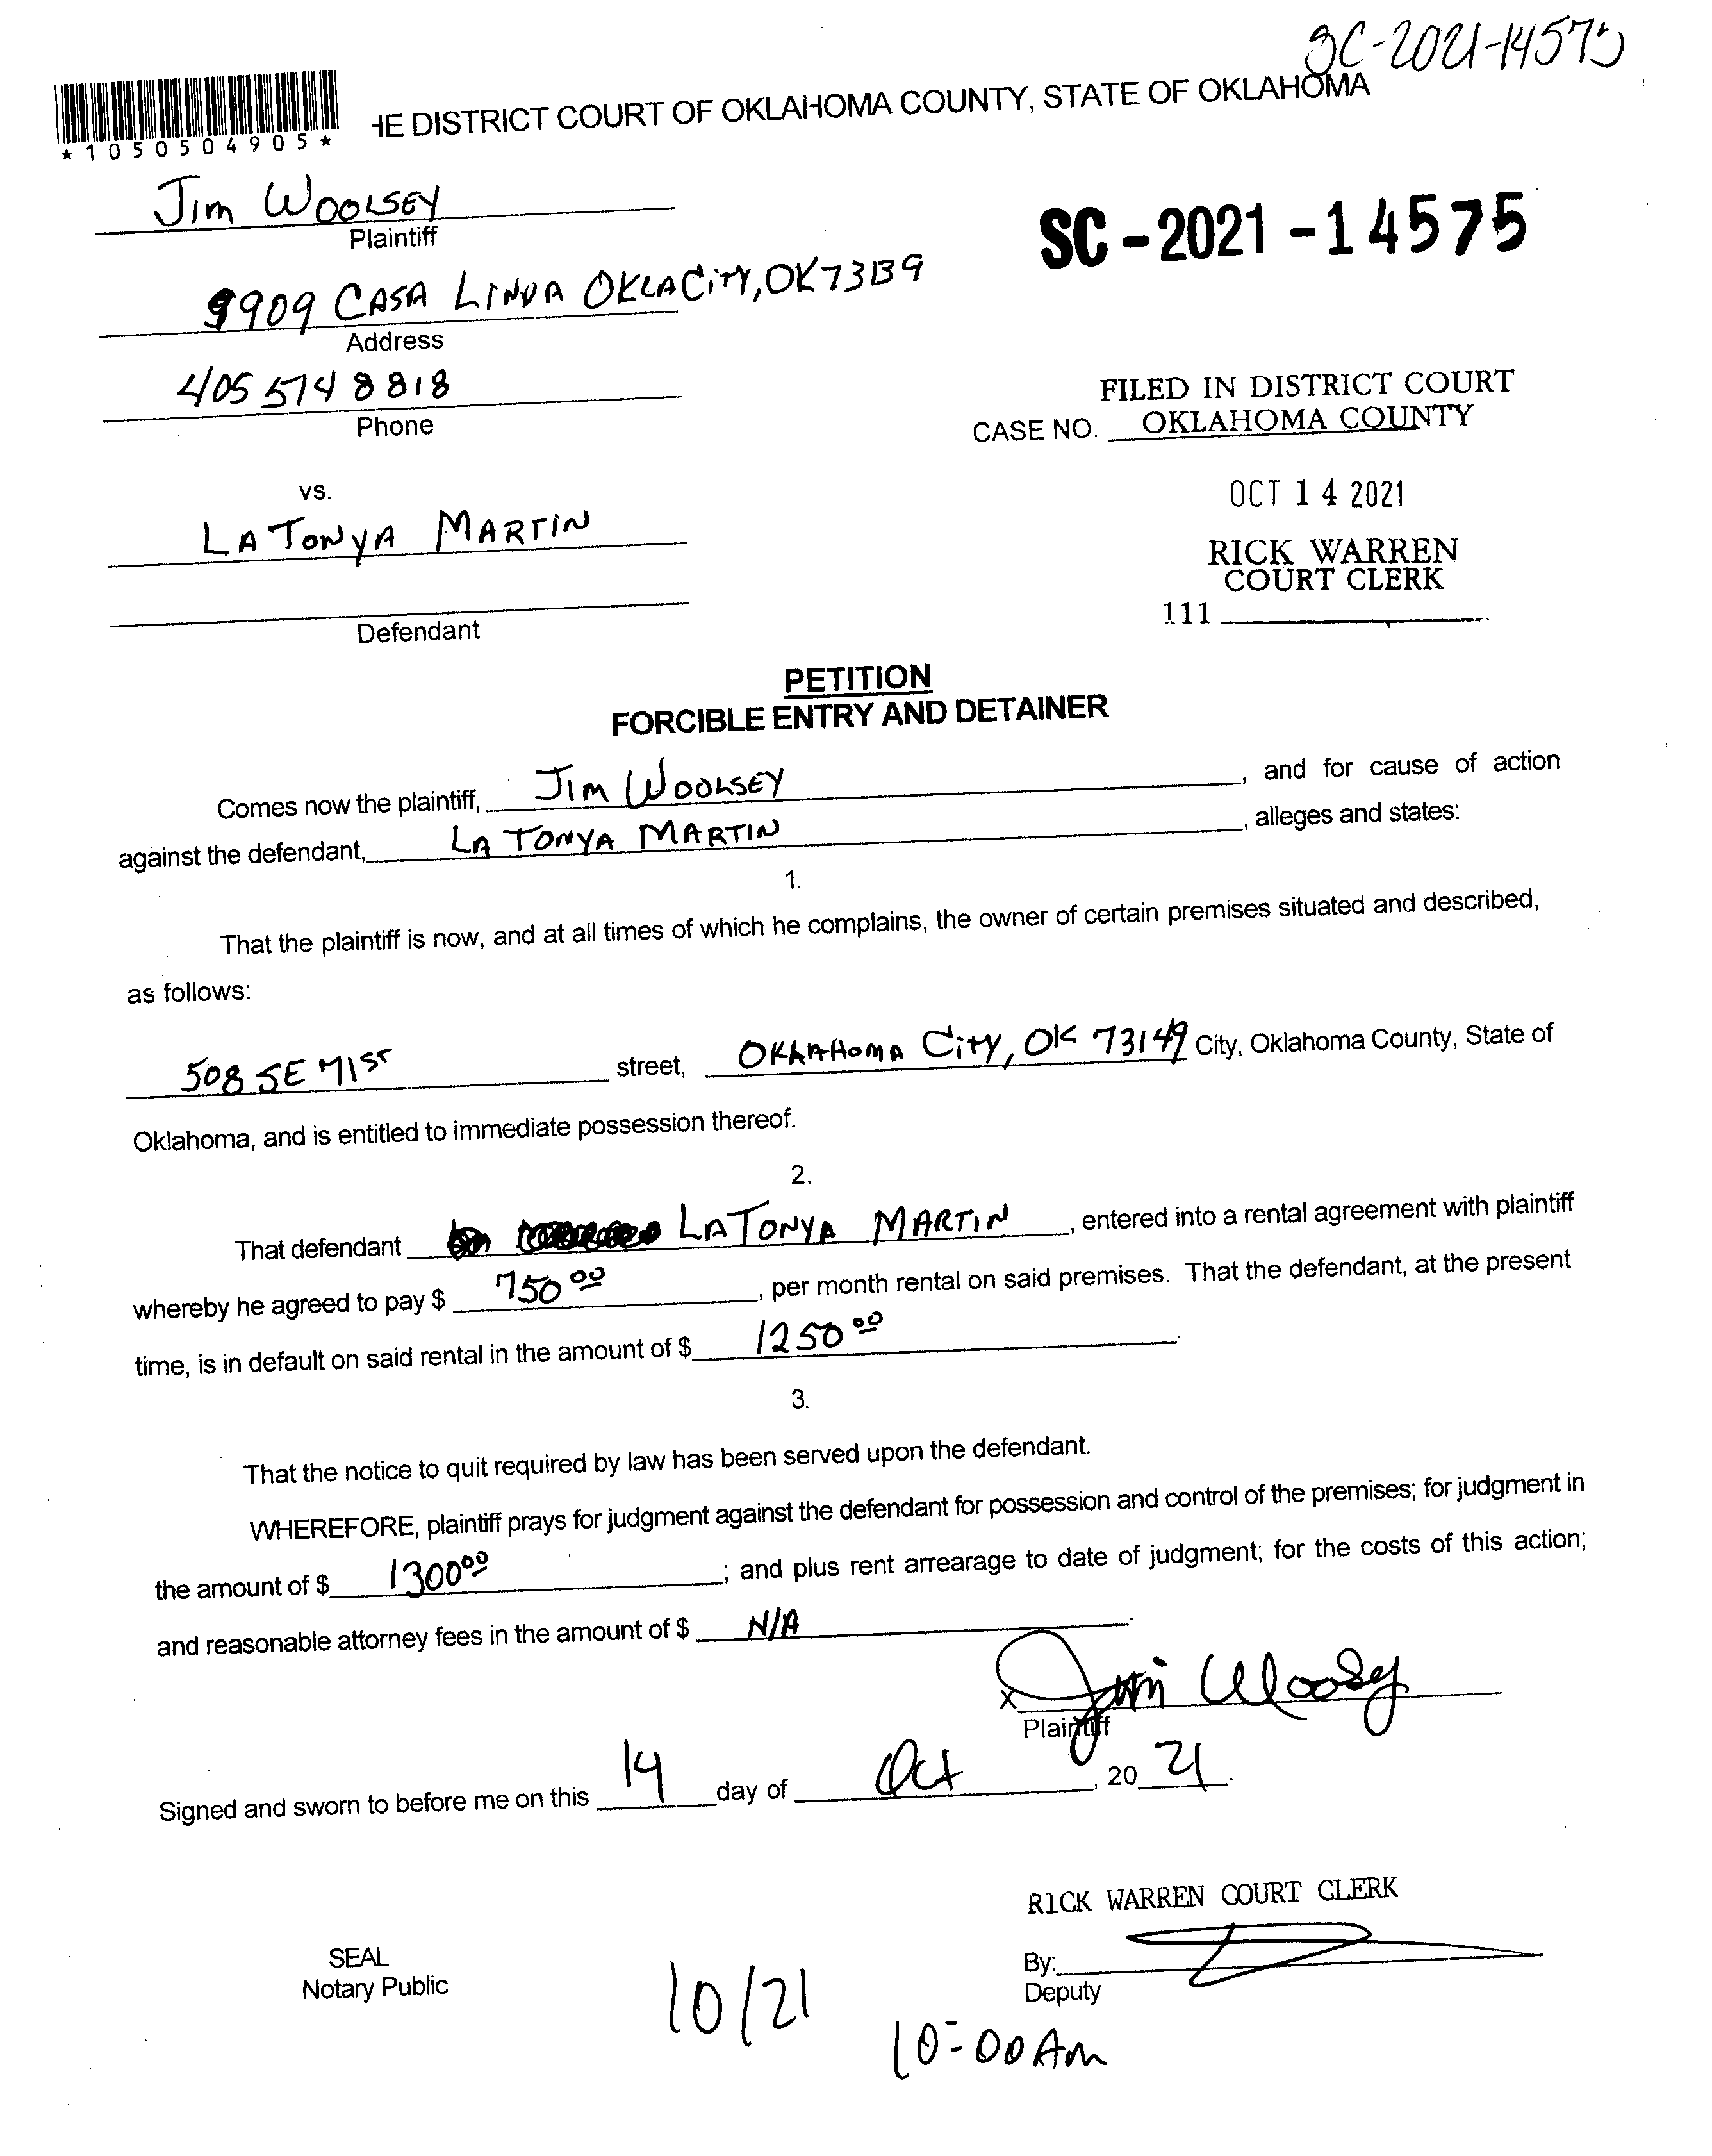 SC-2021-14575
*1050504905*
HE DISTRICT COURT OF OKLAHOMA COUNTY, STATE OF OKLAHOMA
JIM WOOLSEY
Plaintiff
SC-2021-14575
9909 CASA LINDA OKLACITY, OK 73139
Address
405 574 8818
Phone
FILED IN DISTRICT COURT
CASE NO. OKLAHOMA COUNTY
vs.
OCT 14 2021
LA TONYA MARTIN
RICK WARREN
COURT CLERK
111
Defendant
PETITION
FORCIBLE ENTRY AND DETAINER
Comes now the plaintiff, JIM WOOLSEY, and for cause of action
against the defendant, LA TONYA MARTIN, alleges and states:
1.
That the plaintiff is now, and at all times of which he complains, the owner of certain premises situated and described,
as follows:
508 SE 71ST street, OKLAHOMA CITY, OK 73149 City, Oklahoma County, State of
Oklahoma, and is entitled to immediate possession thereof.
2.
That defendant LA TONYA MARTIN, entered into a rental agreement with plaintiff
whereby he agreed to pay $ 750 00, per month rental on said premises. That the defendant, at the present
time, is in default on said rental in the amount of $ 1250 00.
3.
That the notice to quit required by law has been served upon the defendant.
WHEREFORE, plaintiff prays for judgment against the defendant for possession and control of the premises; for judgment in
the amount of $ 1300 00; and plus rent arrearage to date of judgment; for the costs of this action;
and reasonable attorney fees in the amount of $ N/A.
x Jim Woolsey
Plaintiff
Signed and sworn to before me on this 14 day of Oct, 20 21.
RICK WARREN COURT CLERK
SEAL
By:
Notary Public
Deputy
10/21
10:00 Am